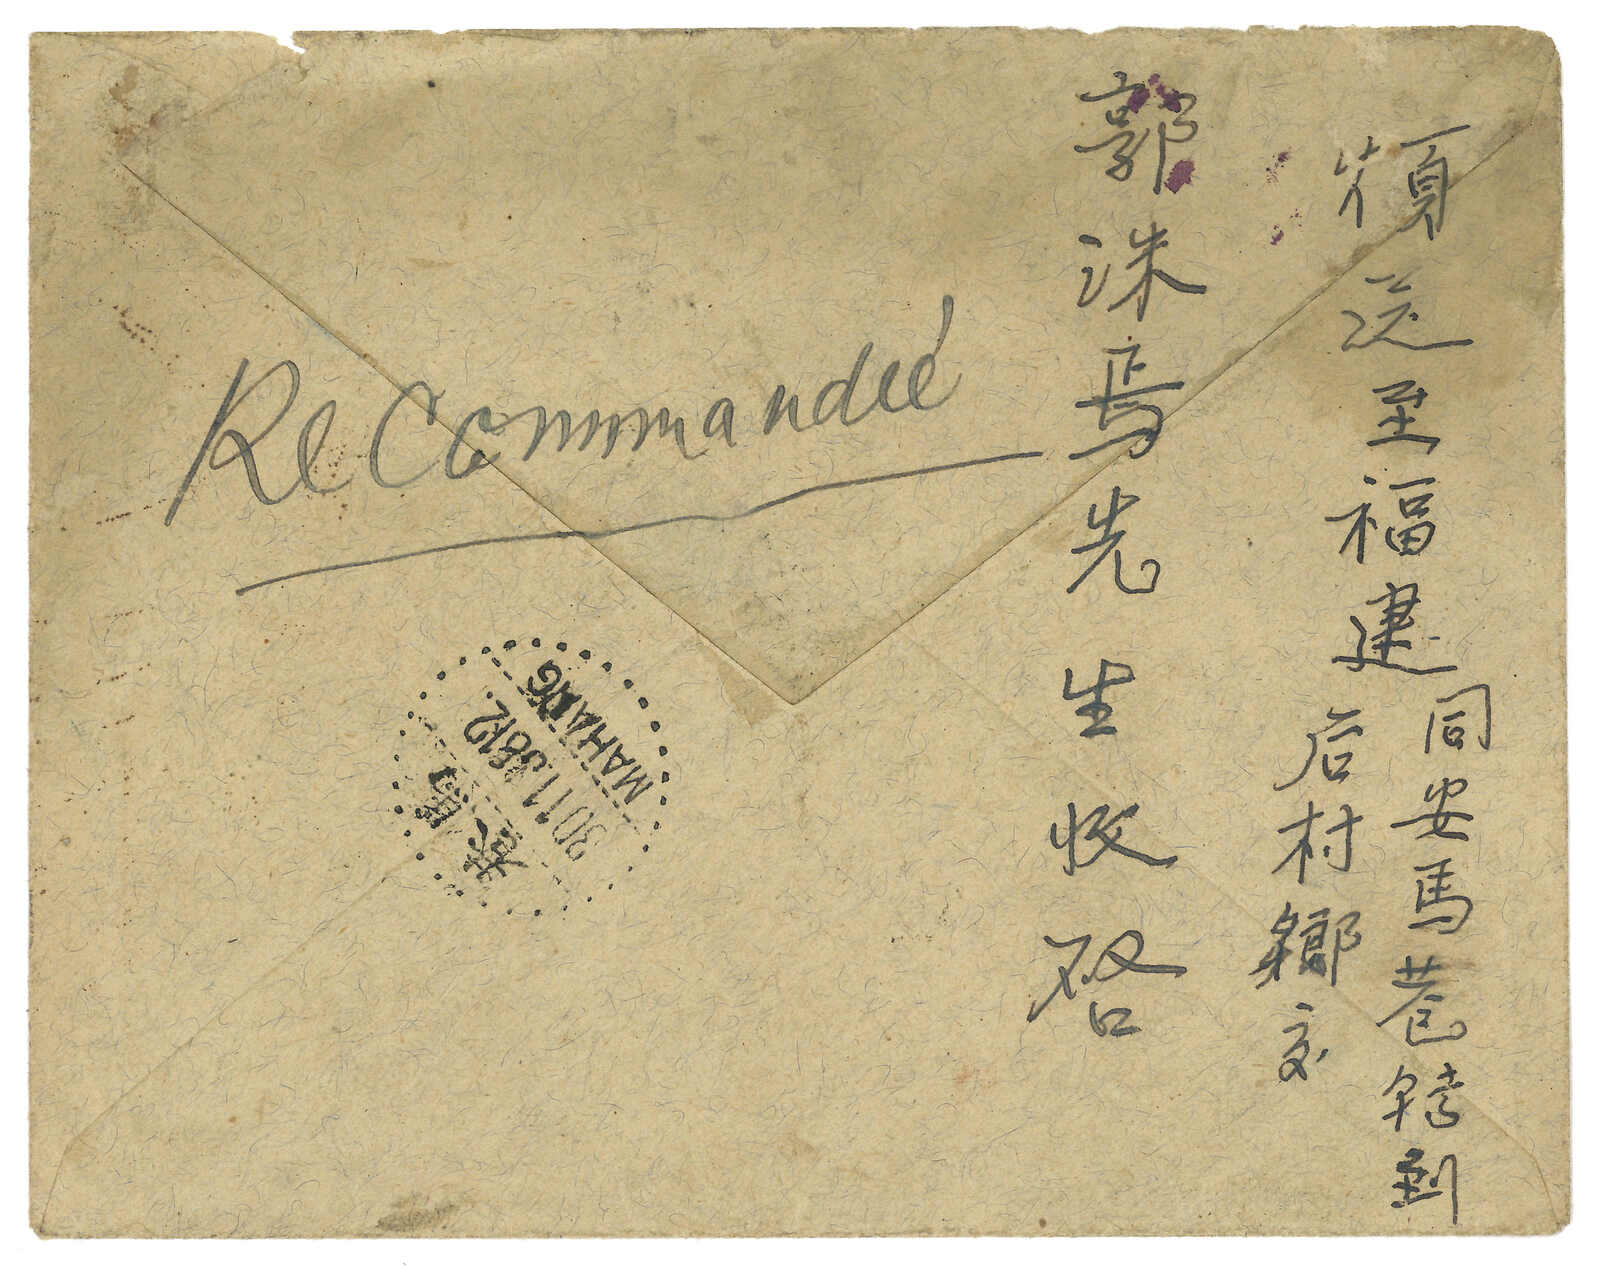 煩送至福建
同安馬巷轉到
后村鄉交
郭洙焉先生收啓
Recommandeé
馬巷
30 11 38 12
MAHANG